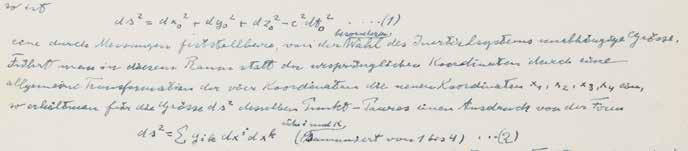 so ist
ds² = dx₀² + dy₀² + dz₀² - c²dt₀² .....(1)
besonderen
eine durch Messungen feststellbare, von der Wahl des Inertialsystems unabhängige Grösse.
Führt man in diesem Raum statt der ursprünglichen Koordinaten durch eine
allgemeine Transformation der vier Koordinaten die neuen Koordinaten x₁, x₂, x₃, x₄ ein,
so erhält man für die Grösse ds² desselben Punkt-Paares einen Ausdruck von der Form
über i und k
ds² = Σ gik dxⁱ dxᵏ (summiert von 1 bis 4) ...(2)